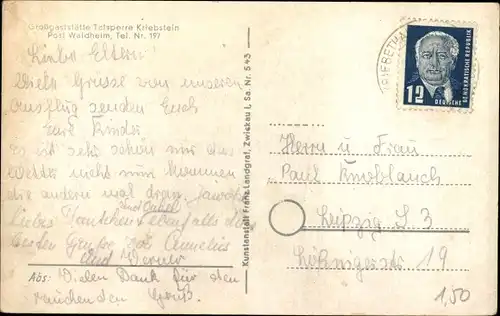 Großgaststätte Talsperre Kriebstein
Post Waldheim, Tel. Nr. 197
Liebe Eltern
Viele Grüsse von unseren
Ausflug senden Euch
Eure Kinder
es ist sehr schön nur das
Wetter nicht nun kommen
die andern mal dran
liebes Tantchen und Onkel ebenfalls die
besten Grüße von Annelies
und Werner
Abs: Vielen Dank für den
Gruß.
Kunstanstalt Franz Landgraf, Zwickau i. Sa. Nr. 543
KRIEBETHAL
12
DEUTSCHE
DEMOKRATISCHE REPUBLIK
Herrn u Frau
Paul Knoblauch
Leipzig S 3
Lößnigerstr 19
1,50